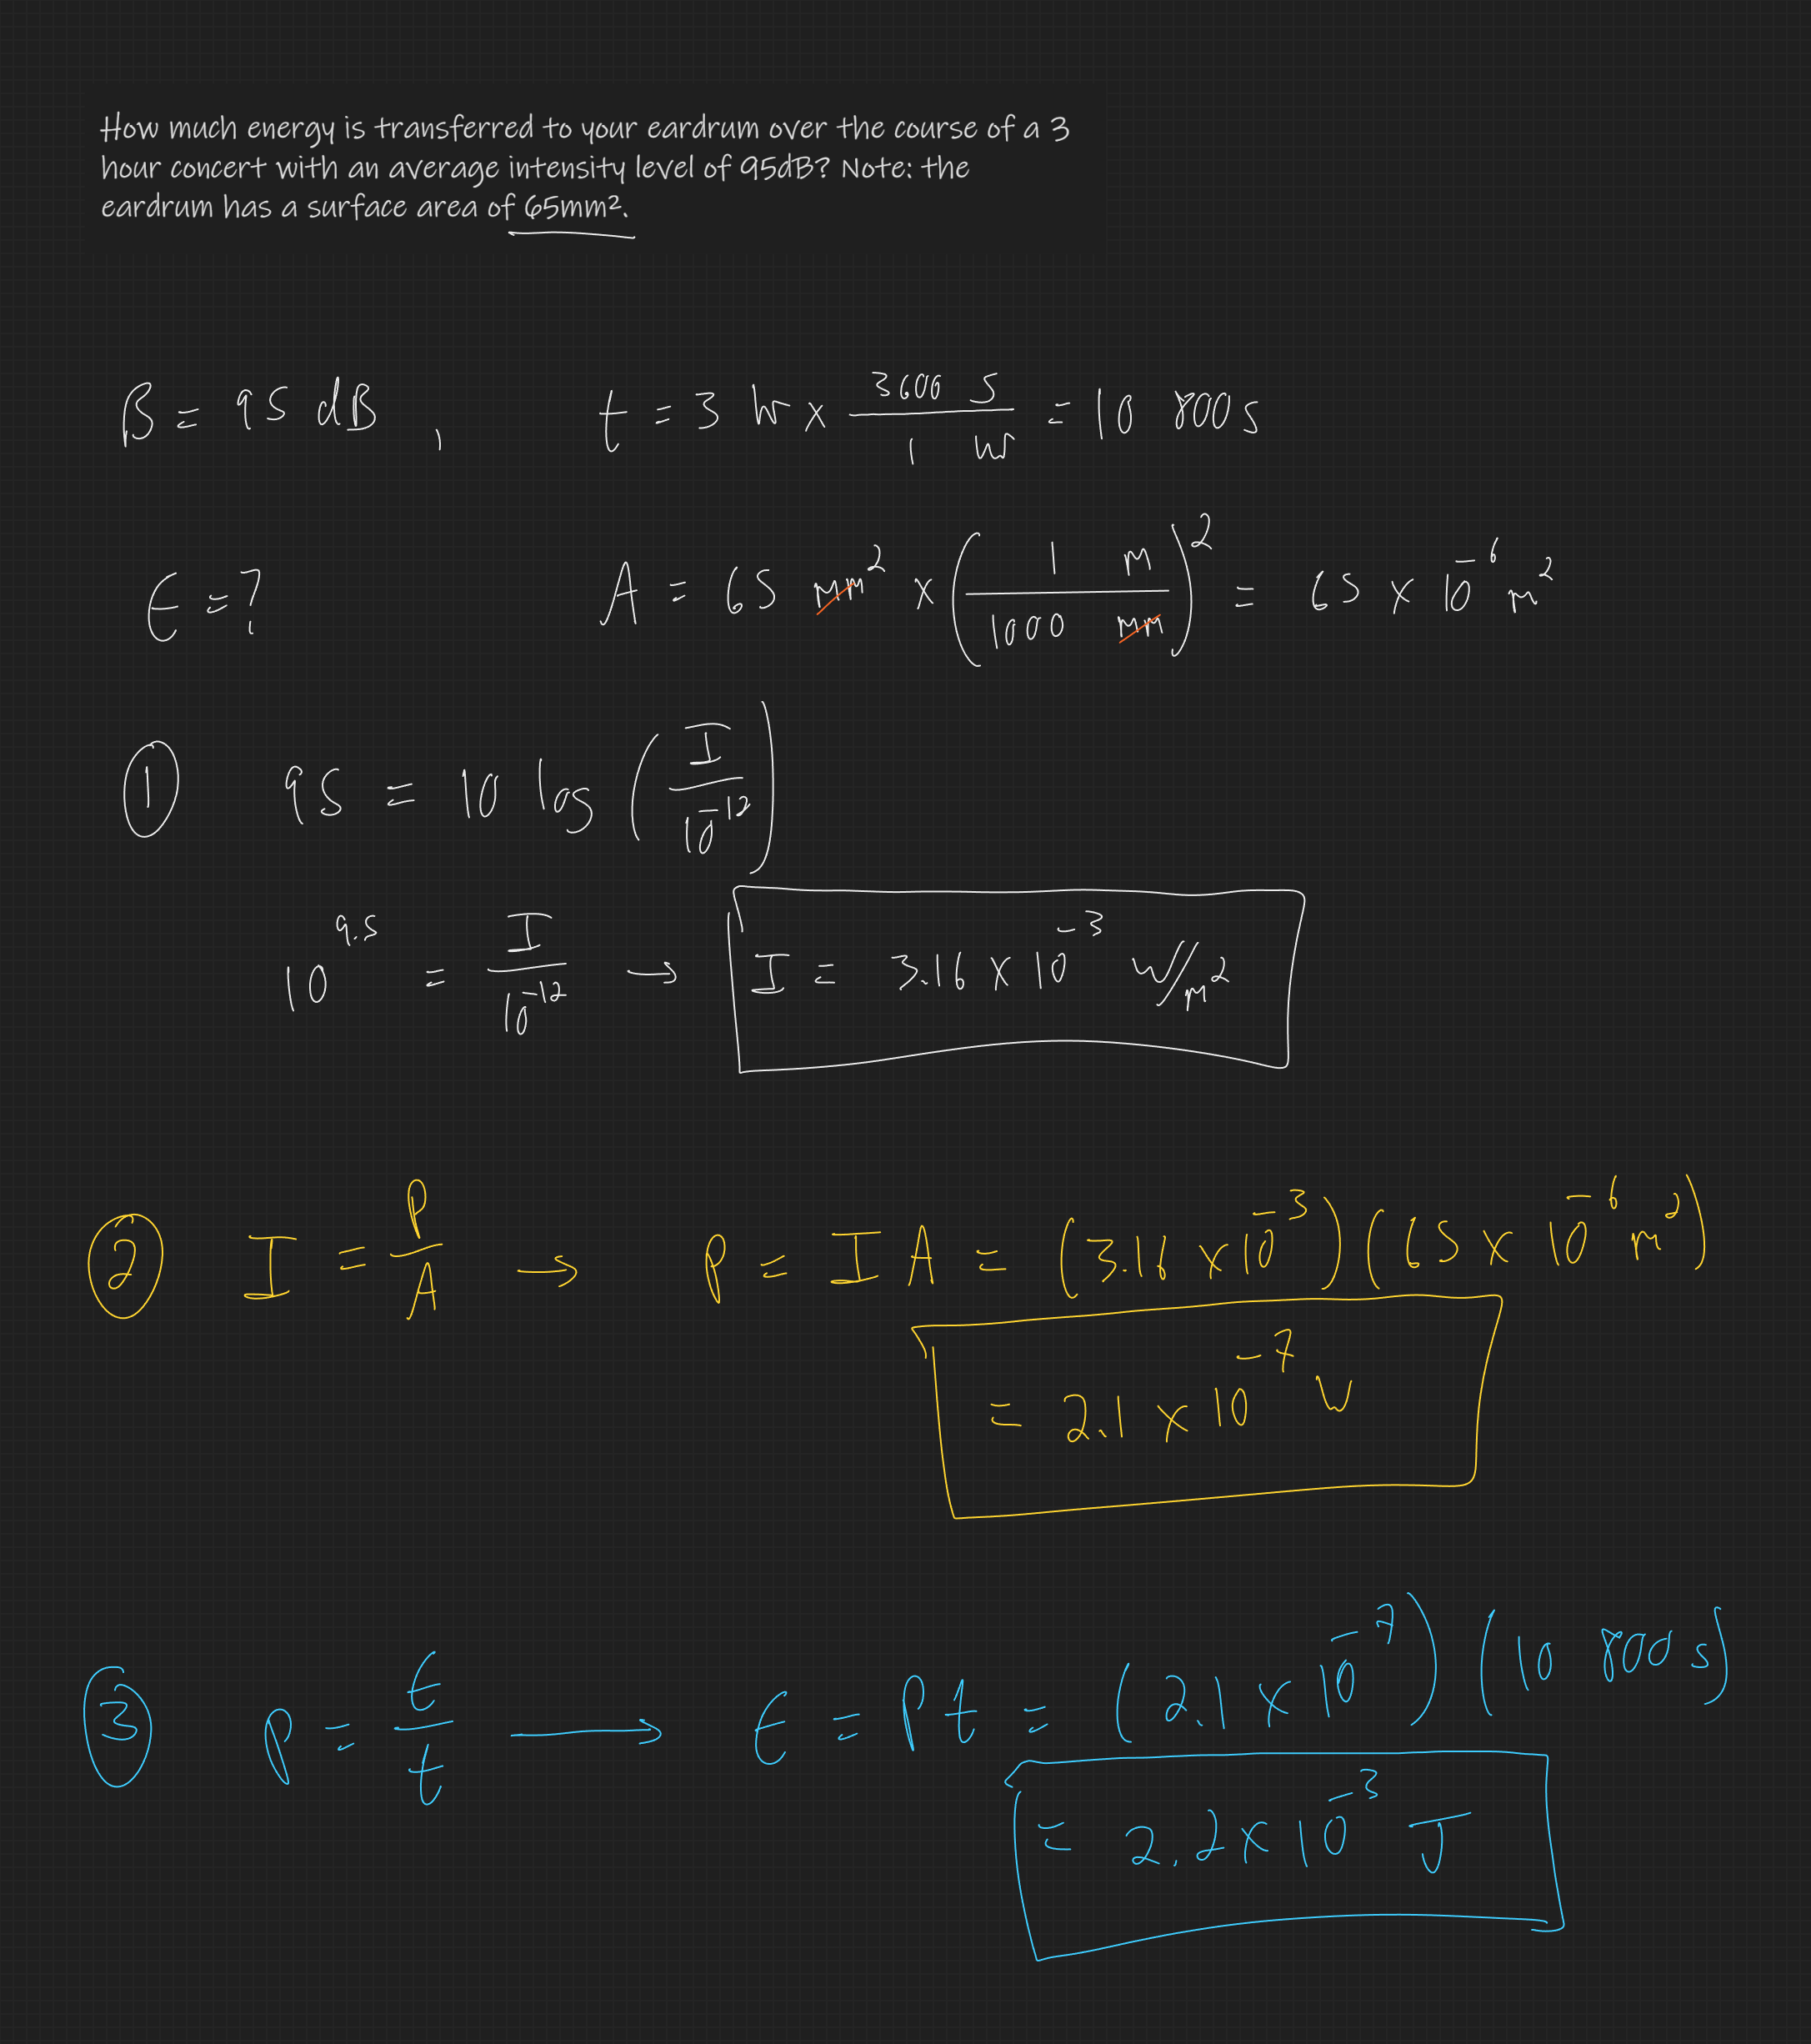 How much energy is transferred to your eardrum over the course of a 3
hour concert with an average intensity level of 95dB? Note: the
eardrum has a surface area of 65mm².
β = 95 dB , t = 3 hr x 3600 s / 1 hr = 10 800 s
E = ? A = 65 mm² x ( 1 m / 1000 mm )² = 65 x 10⁻⁶ m²
① 95 = 10 log ( I / 10⁻¹² )
10^9.5 = I / 10⁻¹² → I = 3.16 x 10⁻³ W/m²
② I = P / A → P = I A = (3.16 x 10⁻³)(65 x 10⁻⁶ m²)
= 2.1 x 10⁻⁷ W
③ P = E / t → E = P t = (2.1 x 10⁻⁷)(10 800 s)
= 2.2 x 10⁻³ J